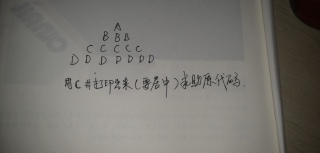 A
B B B
C C C C C
D D D D D D D
用C#打印出来(要居中)求助原代码.